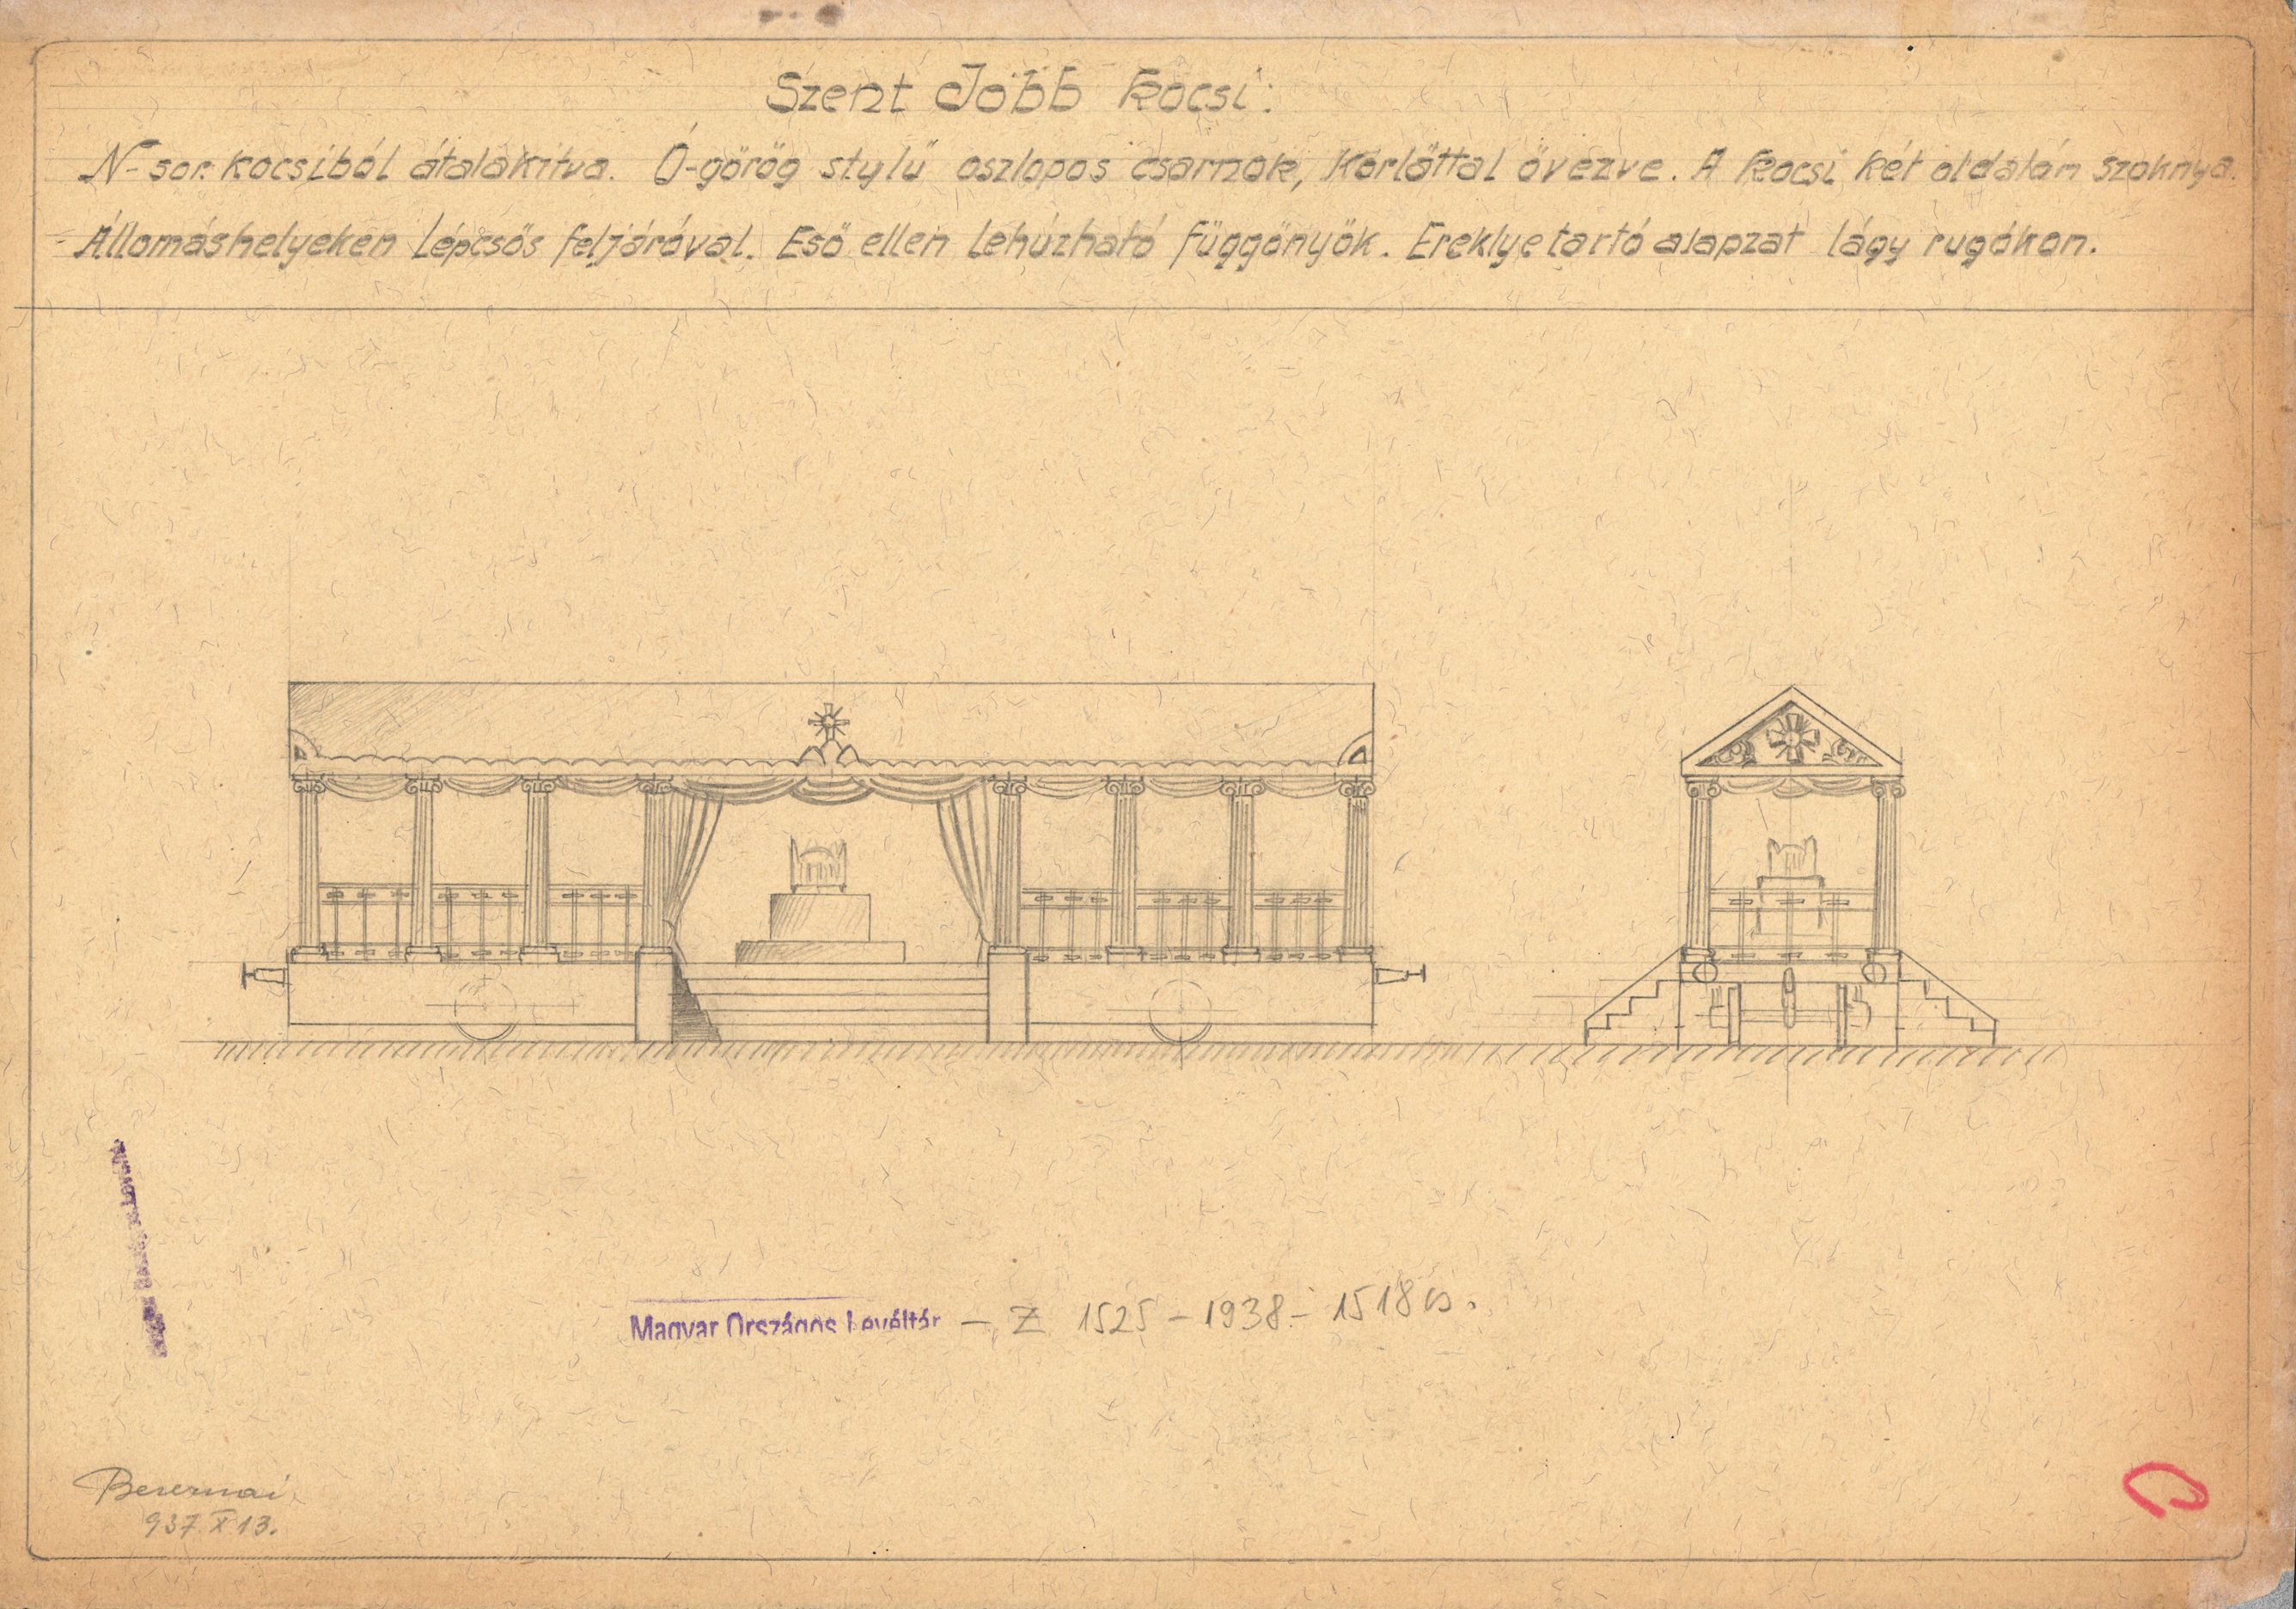 Szent Jobb kocsi:
N-sor. kocsiból átalakítva. Ó-görög stylű oszlopos csarnok, Korláttal övezve. A kocsi két oldalán szoknya.
Állomáshelyeken Lépcsős feljáróval. Eső ellen Lehúzható függönyök. Ereklyetartó alapzat lágy rugókon.
Magyar Országos Levéltár – Z 1525 – 1938 – 1518 cs.
937. X 13.